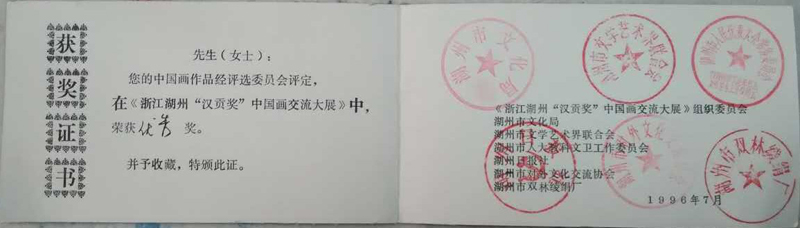 获奖证书
先生（女士）：
您的中国画作品经评选委员会评定，
在《浙江湖州“汉贡奖”中国画交流大展》中，
荣获优秀奖。
并予收藏，特颁此证。
湖州市文化局
湖州市文学艺术界联合会
《浙江湖州“汉贡奖”中国画交流大展》组织委员会
湖州市文化局
湖州市文学艺术界联合会
湖州市人大教科文卫工作委员会
湖州日报社
湖州市对外文化交流协会
湖州市双林绫绢厂
湖州市双林绫绢厂
1996年7月